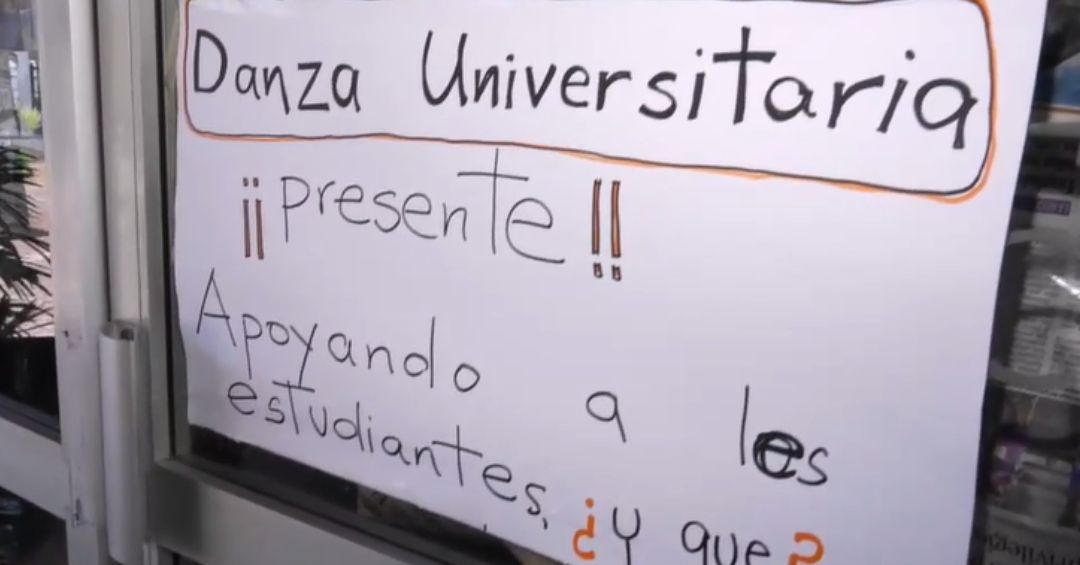 Danza Universitaria
¡¡presente!!
Apoyando a les
estudiantes, ¿Y que?